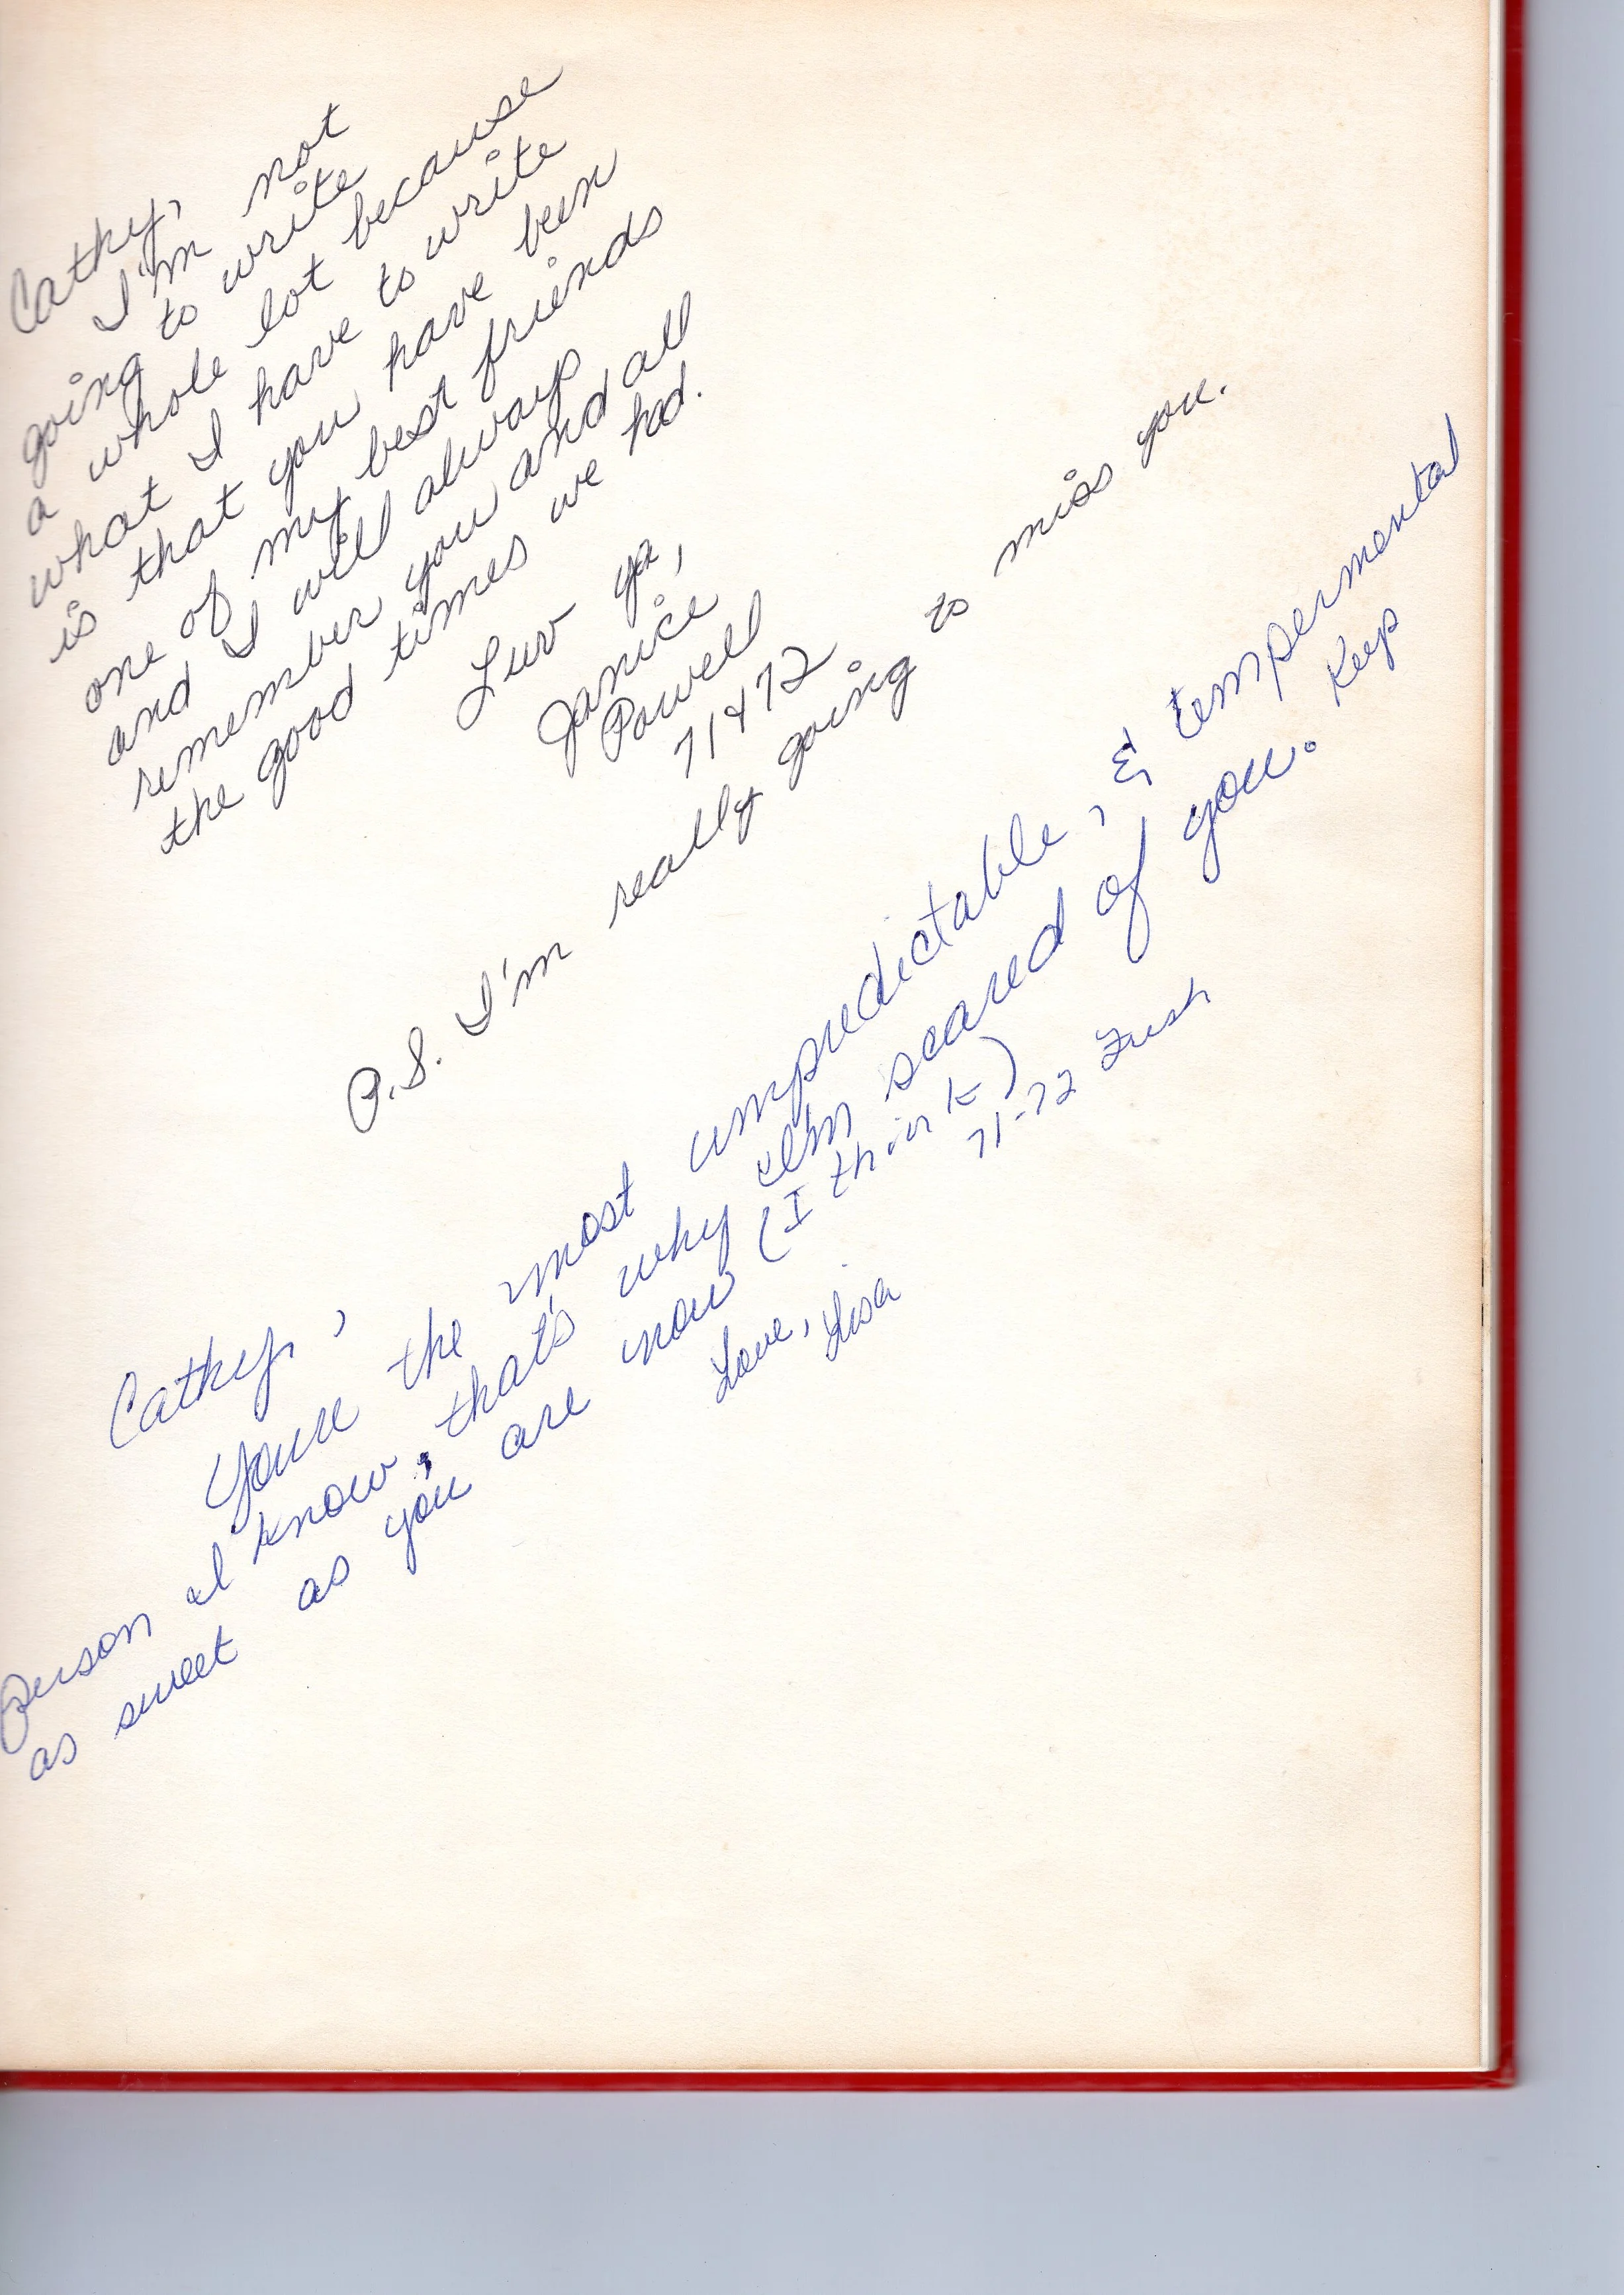 Cathy,
I'm not
going to write
a whole lot because
what I have to write
is that you have been
one of my best friends
and I will always
remember you and all
the good times we had.
Luv ya,
Janice
Powell
71 & 72
P.S. I'm really going to miss you.
Cathy,
Youre the most unpredictable, & tempermental
Person I know, that's why I'm scared of you. Keep
as sweet as you are now (I think)
Love, Lisa
71-72 Fresh